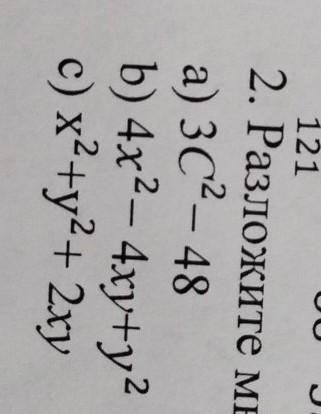 121
2. Разложите
a) 3C² – 48
b) 4x² – 4xy + y²
c) x² + y² + 2xy